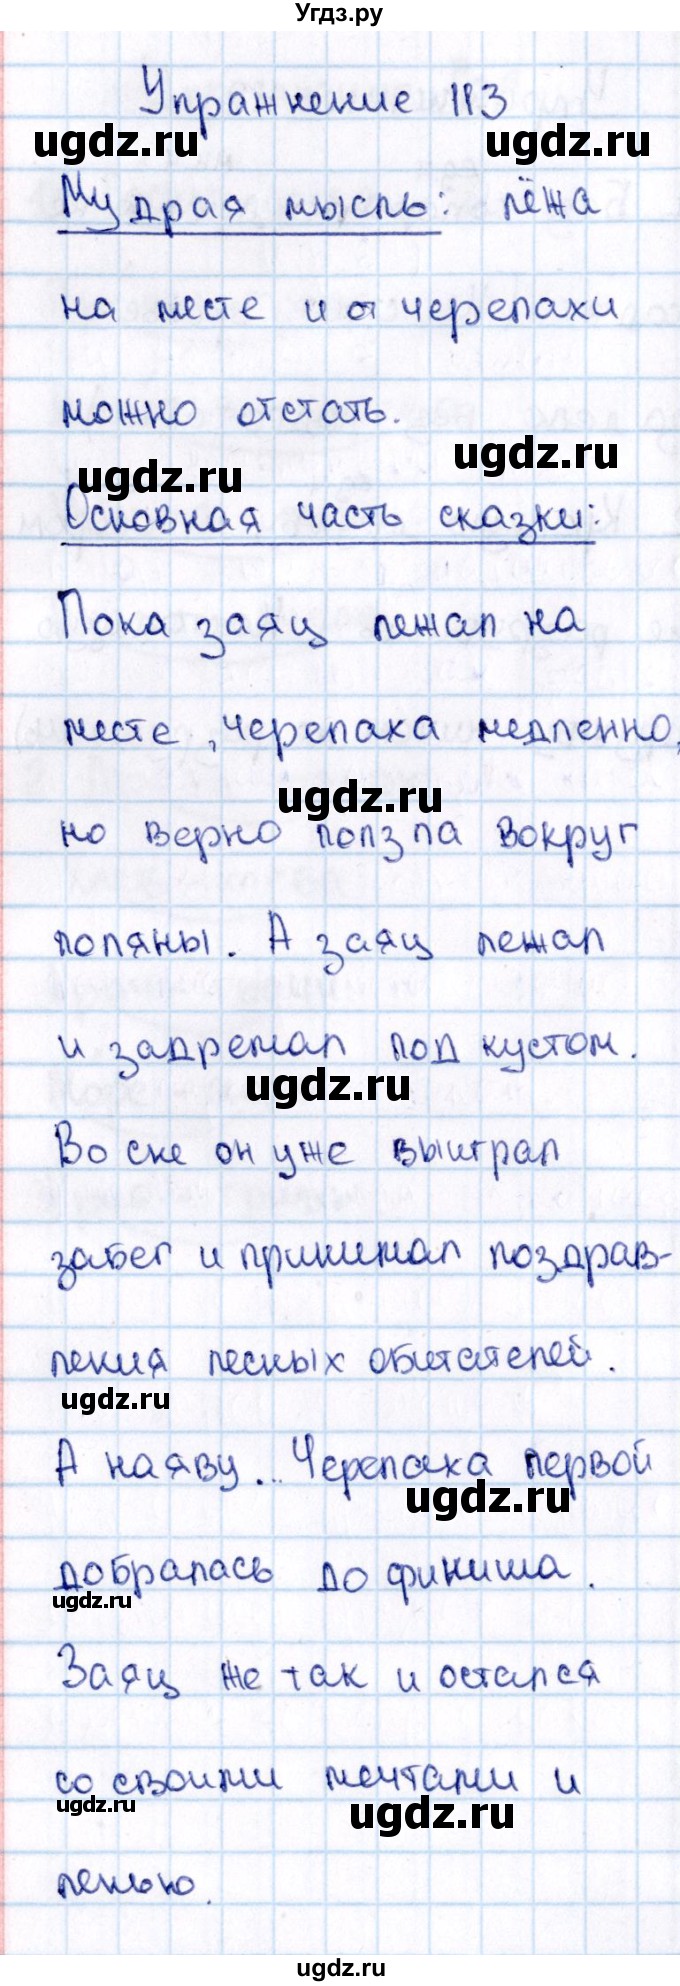 Угдз.ру
Упражнение 113
ugdz.ru ugdz.ru
Мудрая мысль: лёжа
на месте и от черепахи
можно отстать.
ugdz.ru ugdz.ru
Основная часть сказки:
Пока заяц лежал на
месте, черепаха медленно,
ugdz.ru
но верно ползла вокруг
поляны. А заяц лежал
и задремал под кустом.
ugdz.ru
Во сне он уже выиграл
забег и принимал поздрав-
ления лесных обитателей.
ugdz.ru
А наяву... Черепаха первой
ugdz.ru
добралась до финиша.
ugdz.ru
Заяц же так и остался
со своими мечтами и
ugdz.ru ugdz.ru
ленью.
ugdz.ru